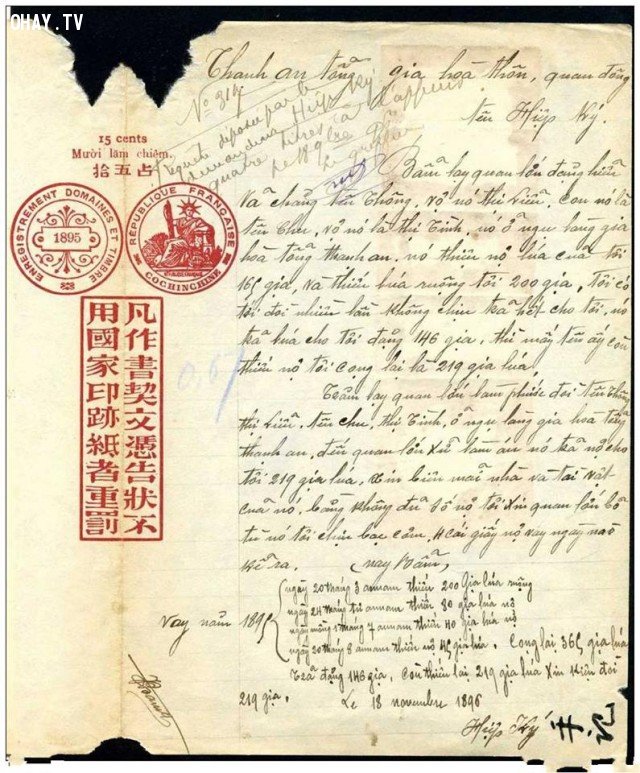 OHAY.TV
Thanh an tổng gia hoà thôn, quan đông
Nº 317
tên Hiệp Ký.
Requête déposée par le
demandeur Hiệp Ký
quatre titres à l'appui
15 cents
Mười lăm chiêm.
拾五占
Bẩm lạy quan lớn đặng hiểu
và chẳng tên Thông, vợ nó thị Liễu, con nó là
tên Chu, vợ nó là thị Tình, nó ở ngụ làng gia
hoà tổng thanh an, nó thiếu nợ lúa của tôi
165 gịa, và thiếu lúa ruộng tôi 200 gịa, Tôi có
tôi đòi nhiều lần không chịu trả hết cho tôi, nó
trả lúa cho tôi đặng 146 gịa, thì mấy tên ấy còn
thiếu nợ tôi cộng lại là 219 gịa lúa.
ENREGISTREMENT DOMAINES ET TIMBRE
1895
RÉPUBLIQUE FRANÇAISE
COCHINCHINE
凡作書契文憑告狀不
用國家印跡紙者重罰
0,67
Trăm lạy quan lớn làm phước đòi tên Thông
thị Liễu, tên Chu, thị Tình, ở ngụ làng gia hoà tổng
thanh an, đến quan lớn xử làm an nó trả nợ cho
tôi 219 gịa lúa, xin biên mãi nhà và tài vật
của nó, bằng không đủ số nợ tôi xin quan lớn bỏ
tù nó tôi chịu bạc cơm, 4 cái giấy nợ vay ngày nào
kể ra. (nay Bẩm)
Vay năm 1895
ngày 20 tháng 3 annam thiếu 200 gịa lúa ruộng
ngày 24 tháng tư annam thiếu 80 gịa lúa nợ
ngày mồng 1 tháng 7 annam thiếu 40 gịa lúa nợ
ngày 20 tháng 8 annam thiếu nợ 45 gịa lúa. Cộng lại 365 gịa lúa
Trả đặng 146 gịa, còn thiếu lại 219 gịa lúa xin kiện đòi
219 gịa. Le 18 novembre 1896
Hiệp Ký